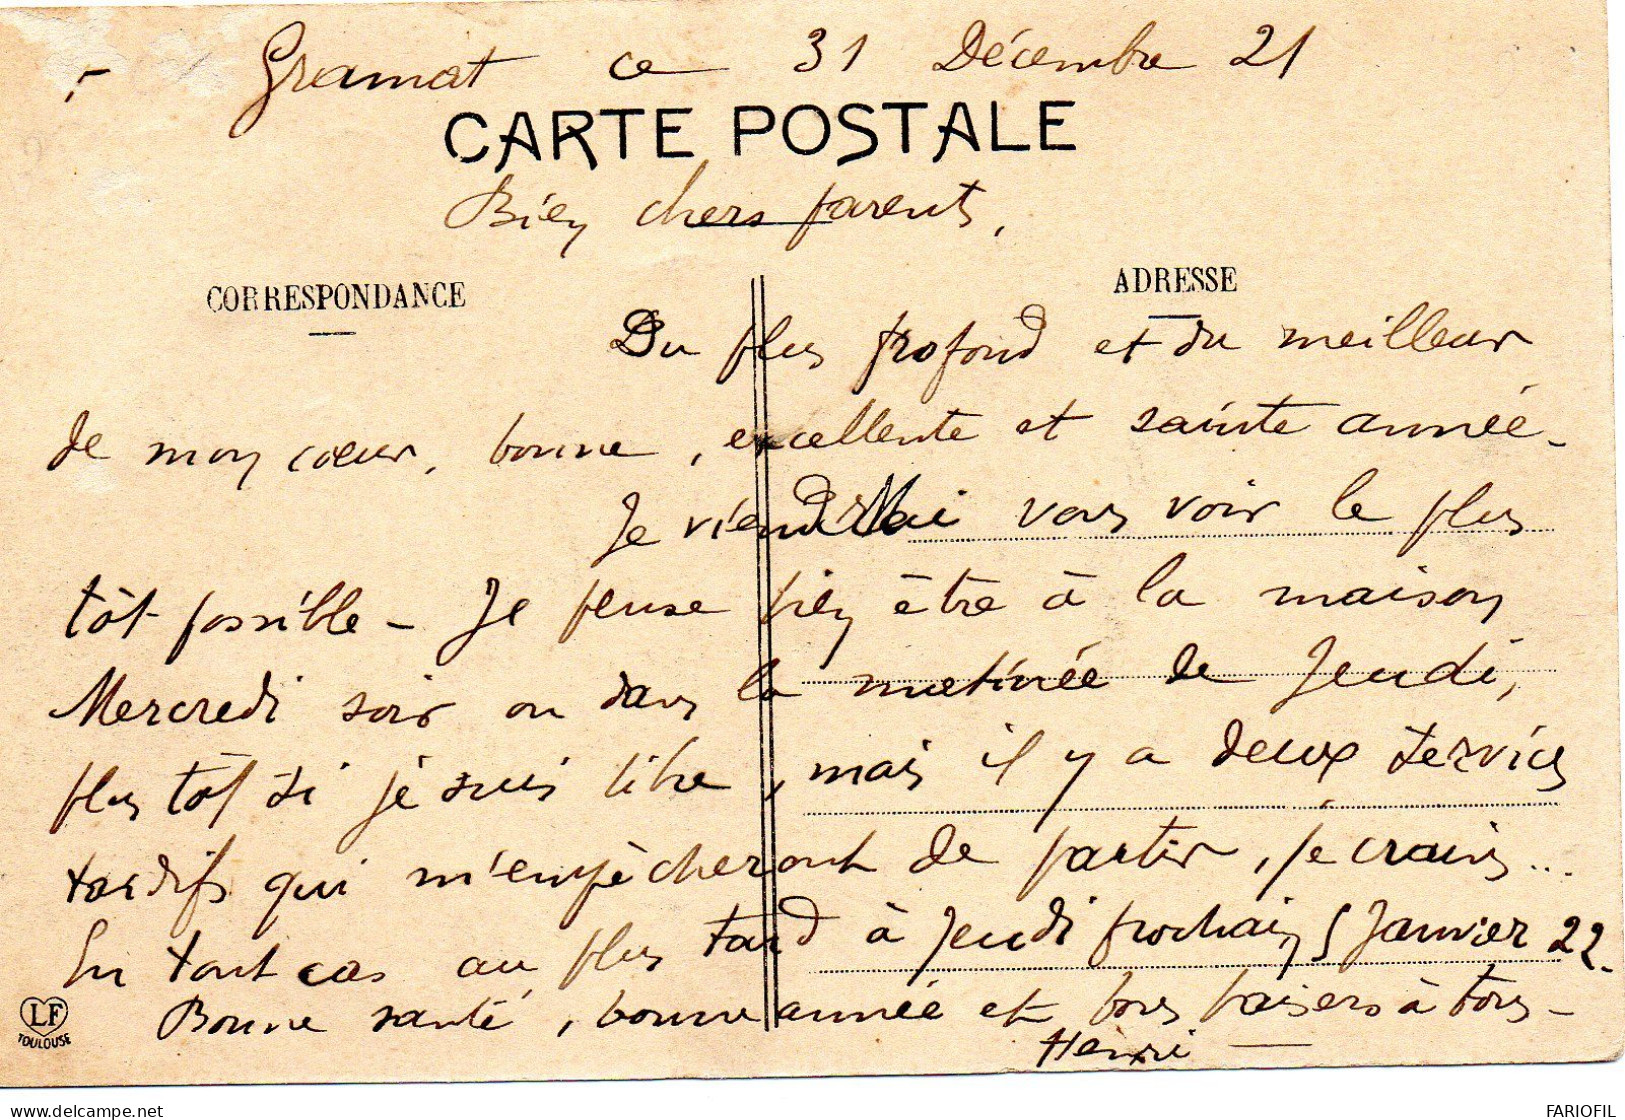 Gramat ce 31 Décembre 21
CARTE POSTALE
Bien chers parents,
CORRESPONDANCE
ADRESSE
Du plus profond et du meilleur
de mon coeur, bonne, excellente et sainte année -
Je viendrai vous voir le plus
tôt possible - Je pense bien être à la maison
Mercredi soir ou dans la matinée de Jeudi,
plus tôt si je suis libre, mais il y a deux services
tardifs qui m'empêcheront de partir, je crains...
En tout cas au plus tard à Jeudi prochain 5 Janvier 22.
Bonne santé, bonne année et bons baisers à tous -
Henri
LF
TOULOUSE
delcampe.net
FARIOFIL